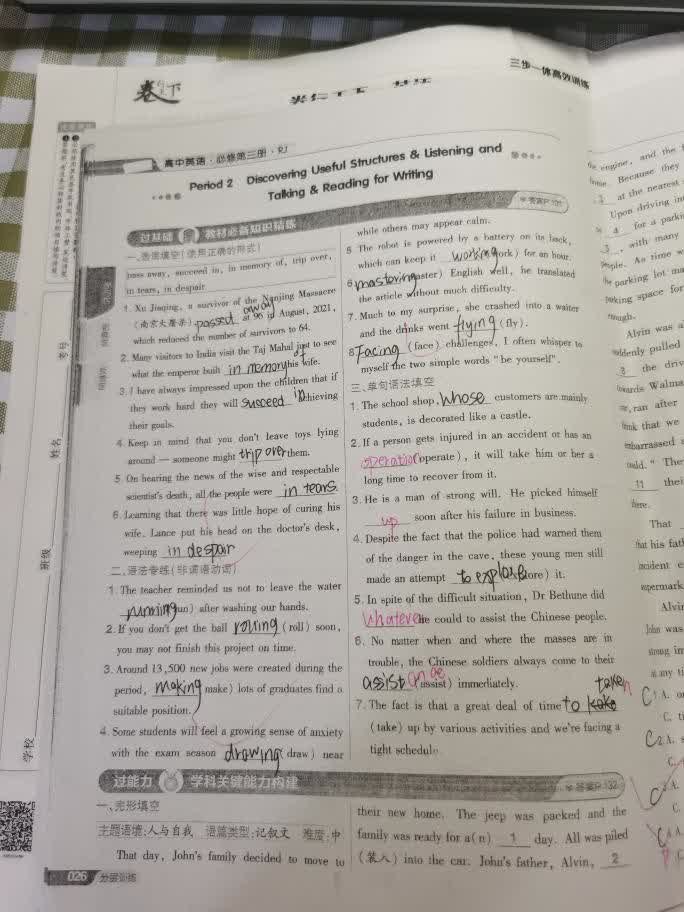 卷下
三步一体高效训练
高中英语·必修第三册·RJ
Period 2 Discovering Useful Structures & Listening and
Talking & Reading for Writing
过基础 教材必备知识精练
答案P131
一、选词填空(使用正确的形式)
pass away, succeed in, in memory of, trip over,
in tears, in despair
1. Xu Jiaqing, a survivor of the Nanjing Massacre
(南京大屠杀) passed away at 96 in August, 2021,
which reduced the number of survivors to 64.
2. Many visitors to India visit the Taj Mahal just to see
what the emperor built in memory of his wife.
3. I have always impressed upon the children that if
they work hard they will succeed in achieving
their goals.
4. Keep in mind that you don't leave toys lying
around — someone might trip over them.
5. On hearing the news of the wise and respectable
scientist's death, all the people were in tears.
6. Learning that there was little hope of curing his
wife, Lance put his head on the doctor's desk,
weeping in despair
二、语法专练(非谓语动词)
1. The teacher reminded us not to leave the water
running un) after washing our hands.
2. If you don't get the ball rolling (roll) soon,
you may not finish this project on time.
3. Around 13,500 new jobs were created during the
period, making make) lots of graduates find a
suitable position.
4. Some students will feel a growing sense of anxiety
with the exam season drawing draw) near
while others may appear calm.
5. The robot is powered by a battery on its back,
which can keep it working ork) for an hour.
6. mastering aster) English well, he translated
the article without much difficulty.
7. Much to my surprise, she crashed into a waiter
and the drinks went flying (fly).
8. Facing (face) challenges, I often whisper to
myself the two simple words "be yourself".
三、单句语法填空
1. The school shop, whose customers are mainly
students, is decorated like a castle.
2. If a person gets injured in an accident or has an
operation (operate), it will take him or her a
long time to recover from it.
3. He is a man of strong will. He picked himself
up soon after his failure in business.
4. Despite the fact that the police had warned them
of the danger in the cave, these young men still
made an attempt to explore xplore) it.
5. In spite of the difficult situation, Dr Bethune did
whatever he could to assist the Chinese people.
6. No matter when and where the masses are in
trouble, the Chinese soldiers always come to their
assistance (assist) immediately.
7. The fact is that a great deal of time to taken
(take) up by various activities and we're facing a
tight schedule.
过能力 学科关键能力构建
答案P132
一、完形填空
主题语境:人与自我 语篇类型:记叙文 难度:中
That day, John's family decided to move to
their new home. The jeep was packed and the
family was ready for a(n) 1 day. All was piled
(装入) into the car. John's father, Alvin, 2
026 分层训练
学校
班级
姓名
考号
the engine, and the
home. Because they
3 at the nearest
Upon driving into
4 for a parking
5, with many
people. As time
the parking lot
parking space for
Alvin was
suddenly pulled
the driv
towards Walma
car, ran after
think that we
embarrassed
could. "The
11 thei
there.
That
that his fath
incident
supermark
Alvin
John was
strong im
at any ti
C 1. A.
C. t
C 2. A.
C.